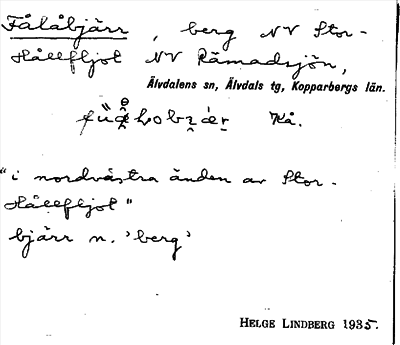 Fålåbjärr, berg NV Stor-
Hållfljot NV Rämadsjön,
Älvdalens sn, Älvdals tg, Kopparbergs län.
Kå.
"i nordvästra änden av Stor-
Hållfljot"
bjärr n. 'berg'
HELGE LINDBERG 1935.